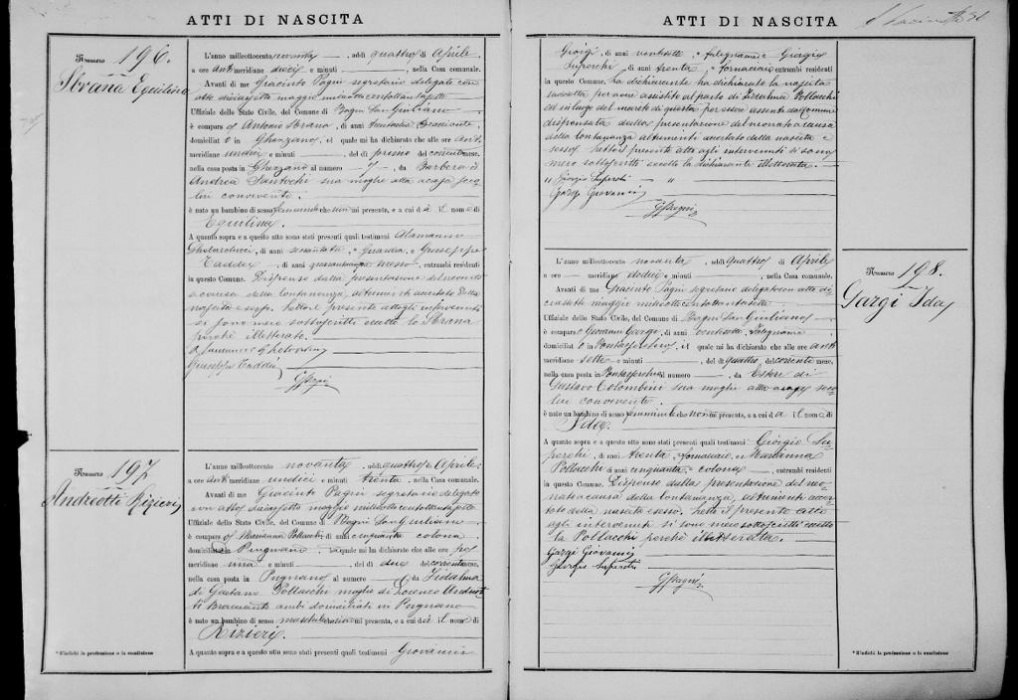 ATTI DI NASCITA
Numero 196.
Sbrana Equilina
L'anno milleottocento novanta, addì quattro di Aprile
a ore ant meridiane dieci e minuti, nella Casa comunale.
Avanti di me Giacinto Pagni segretario delegato con
atto diciassette maggio milleottocentottantasette
Uffiziale dello Stato Civile, del Comune di Bagni San Giuliano
è comparso Antonio Sbrana, di anni trentasei Bracciante
domiciliato in Ghezzano, il quale mi ha dichiarato che alle ore ant
meridiane undici e minuti, del dì primo del corrente mese,
nella casa posta in Ghezzano al numero, da Barbera di
Andrea Santochi sua moglie atta a casa seco
lui convivente.
è nato un bambino di sesso femminile che non mi presenta, e a cui dà il nome di
Equilina.
A quanto sopra e a questo atto sono stati presenti quali testimoni Alamanno
Ghelarducci, di anni sessanta, Guardia, e Giuseppe
Taddei, di anni quarantacinque messo, entrambi residenti
in questo Comune. Dispenso dalla presentazione del neonato
a causa della lontananza, ed accertato della
nascita e sesso. Letto il presente atto agli intervenuti
si sono meco sottoscritti eccetto lo Sbrana
perché illetterato.
Alamanno Ghelarducci
Giuseppe Taddei
G Pagni
Numero 197
Andreotti Rizieri
L'anno milleottocento novanta, addì quattro di Aprile
a ore ant meridiane undici e minuti trenta, nella Casa comunale.
Avanti di me Giacinto Pagni segretario delegato
con atto diciassette maggio milleottocentottantasette
Uffiziale dello Stato Civile, del Comune di Bagni San Giuliano
è comparsa Pollacchi di anni cinquanta colona
domiciliata in Pugnano, la quale mi ha dichiarato che alle ore
meridiane una e minuti, del dì due del corrente mese,
nella casa posta in Pugnano al numero, da Zidalma
di Gaetano Pollacchi moglie di Lorenzo Andreot
ti Bracciante ambi domiciliati in Pugnano
è nato un bambino di sesso maschile che mi presenta, e a cui dà il nome di
Rizieri.
A quanto sopra e a questo atto sono stati presenti quali testimoni Giovanni
* S'indichi la professione o la condizione
ATTI DI NASCITA
Giorgi, di anni ventisette, falegname e Giorgio
Superchi, di anni trenta, fornaciaio entrambi residenti
in questo Comune. La dichiarante ha dichiarato la nascita
suddetta per aver assistito al parto di Zidalma Pollacchi
ed in luogo del marito di questa per essere assente dal Comune
dispensata dalla presentazione del neonato a causa
della lontananza altrimenti accertato della nascita e
sesso. Letto il presente atto agli intervenuti si sono
meco sottoscritti eccetto la dichiarante illetterata.
Giorgio Superchi
Giorgi Giovanni
G Pagni
Numero 198.
Gargi Ida
L'anno milleottocento novanta, addì quattro di Aprile
a ore meridiane dodici e minuti, nella Casa comunale.
Avanti di me Giacinto Pagni segretario delegato con atto di
ciassette maggio milleottocentottantasette
Uffiziale dello Stato Civile, del Comune di Bagni San Giuliano
è comparso Giovanni Giorgi, di anni ventisette, Falegname
domiciliato in Pontasserchio, il quale mi ha dichiarato che alle ore ant
meridiane sette e minuti, del dì quattro del corrente mese,
nella casa posta in Pontasserchio al numero, da Ester di
Gustavo Colombini sua moglie atta a casa seco
lui convivente.
è nato un bambino di sesso femminile che non mi presenta, e a cui dà il nome di
Ida.
A quanto sopra e a questo atto sono stati presenti quali testimoni Giorgio Su
perchi, di anni trenta, fornaciaio, e Marianna
Pollacchi di anni cinquanta, colona, entrambi residenti
in questo Comune. Dispenso dalla presentazione del neo
nato a causa della lontananza, altrimenti accer
tato della nascita e sesso. Letto il presente atto
agli intervenuti si sono meco sottoscritti eccetto
la Pollacchi perché illetterata.
Gargi Giovanni
Giorgio Superchi
G Pagni
* S'indichi la professione o la condizione